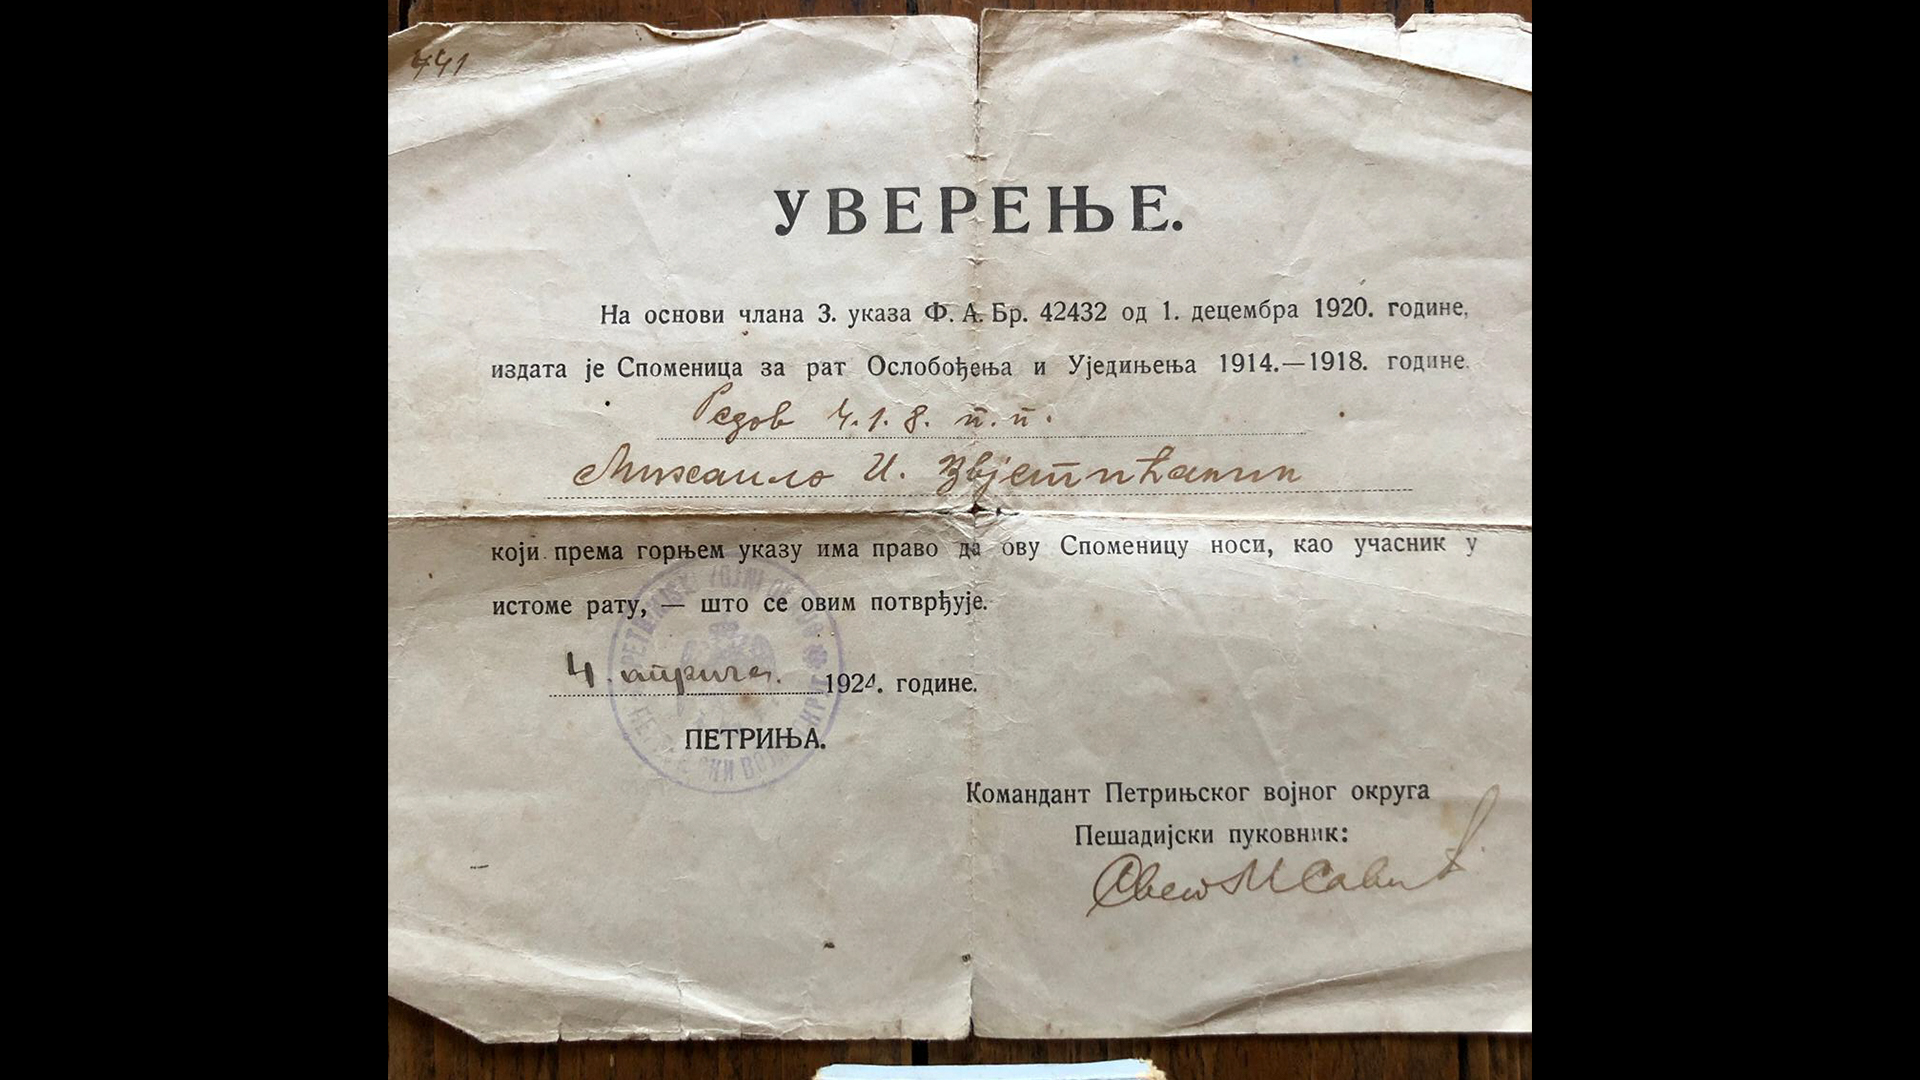 441
УВЕРЕЊЕ.
На основи члана 3. указа Ф. А. Бр. 42432 од 1. децембра 1920. године,
издата је Споменица за рат Ослобођења и Уједињења 1914.—1918. године.
Редов Ч.1.8. п.п.
Михаило И. Звјетићанин
који према горњем указу има право да ову Споменицу носи, као учасник у
истоме рату, — што се овим потврђује.
4. априла. 1924. године.
ПЕТРИЊА.
Командант Петрињског војног округа
Пешадијски пуковник:
Свет М Савић